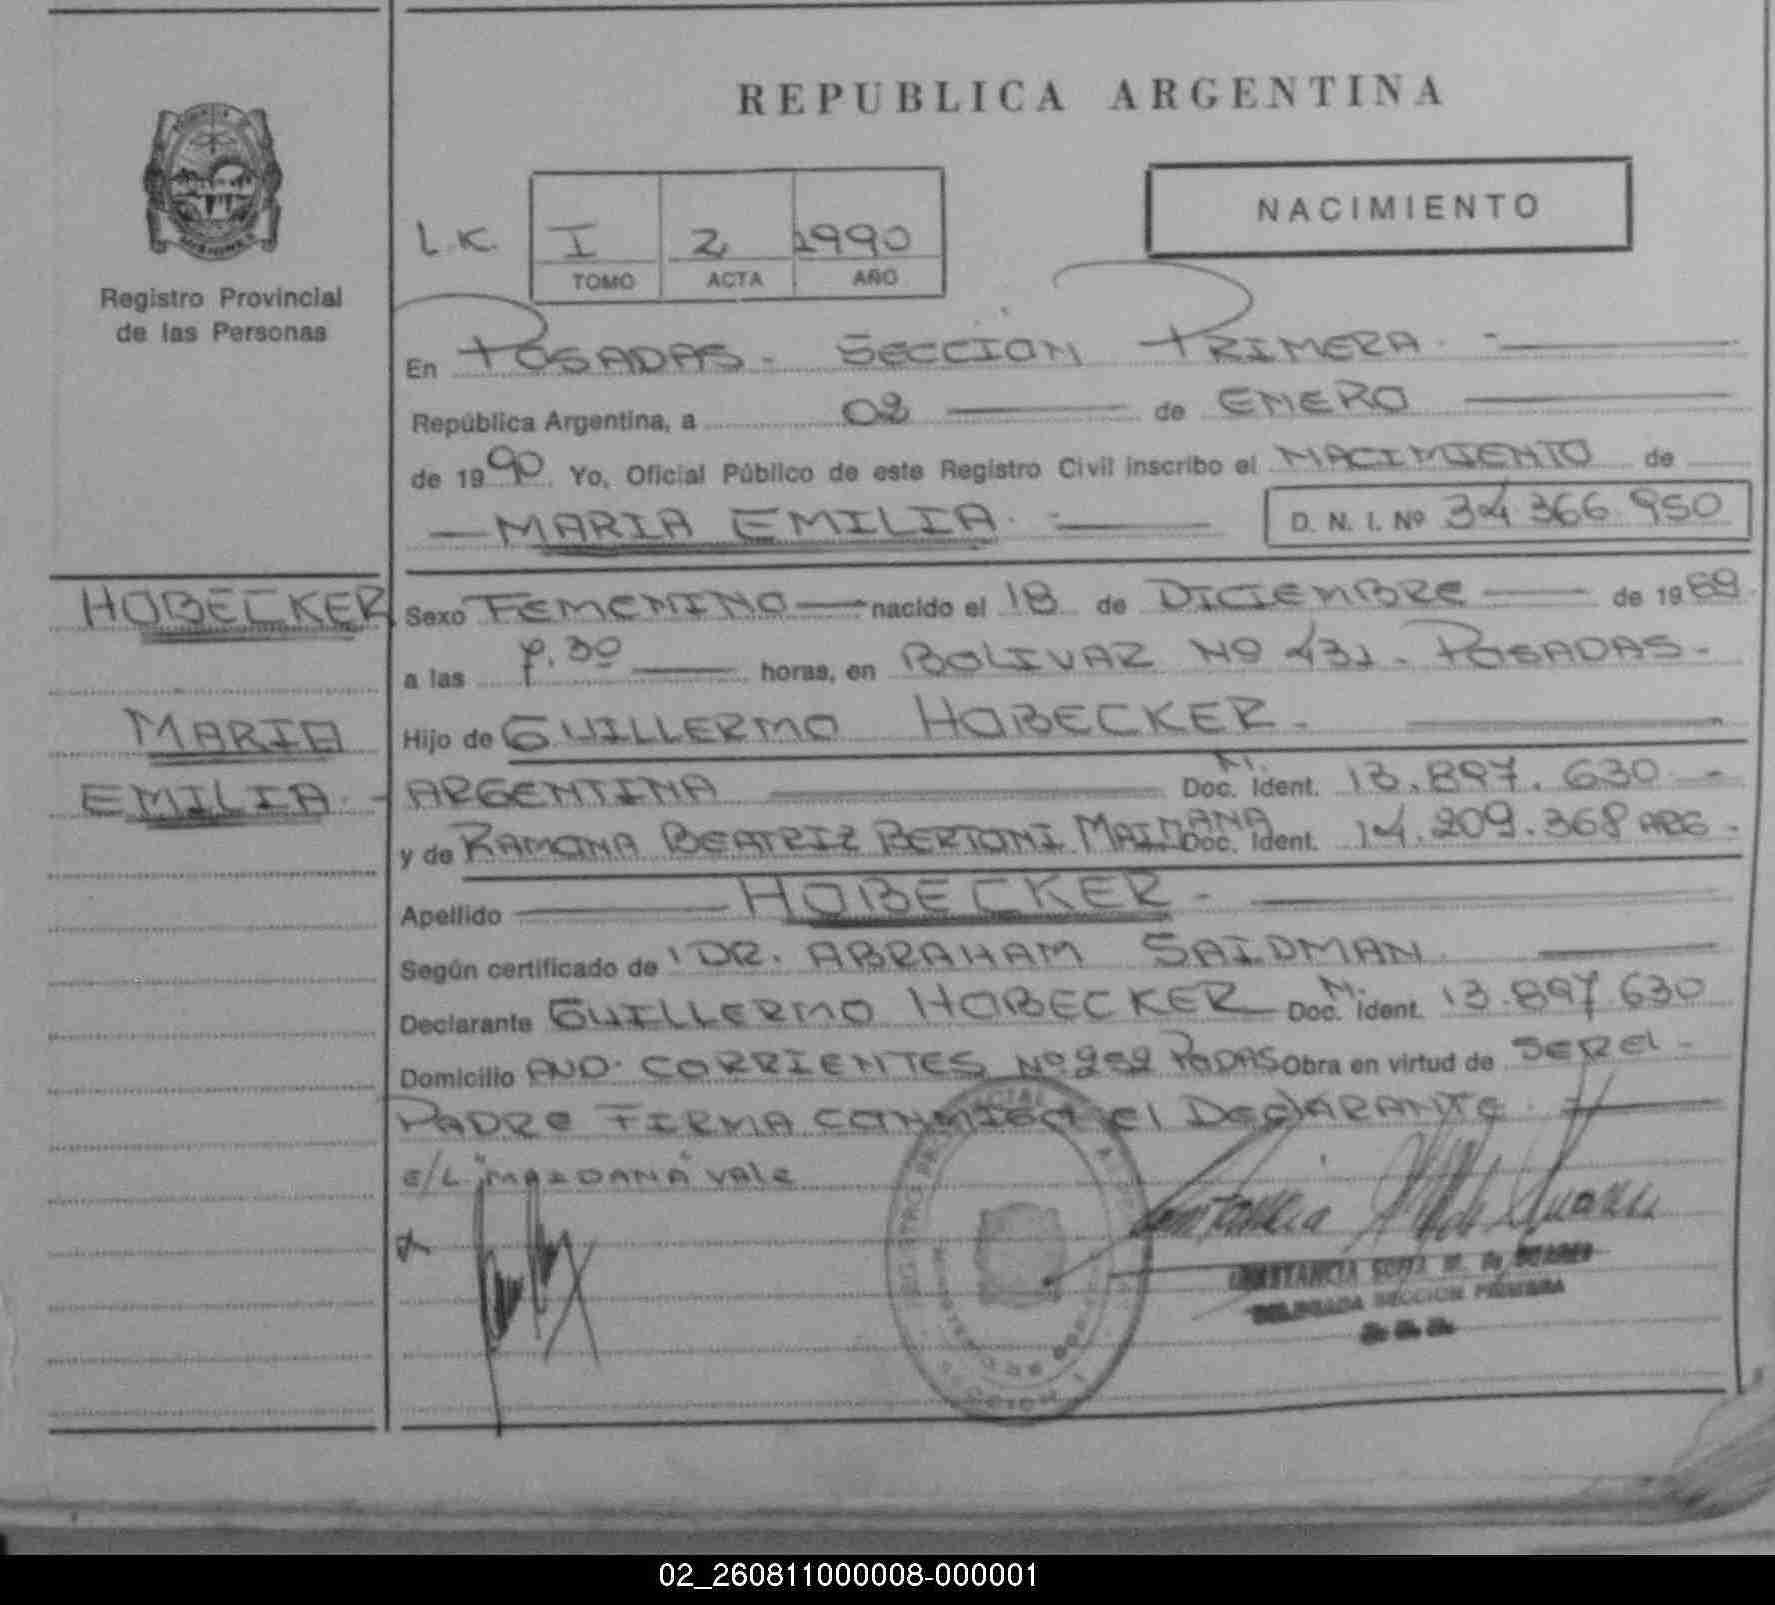 REPUBLICA ARGENTINA
Registro Provincial
de las Personas
L.K. I 2 1990
TOMO ACTA AÑO
NACIMIENTO
En POSADAS - SECCION PRIMERA.
República Argentina, a 02 de ENERO
de 1990 Yo, Oficial Público de este Registro Civil inscribo el NACIMIENTO de
MARIA EMILIA. D. N. I. Nº 34 366 950
HOBECKER
MARIA
EMILIA.
Sexo FEMENINO nacido el 18 de DICIEMBRE de 1989.
a las 7.30 horas, en BOLIVAR Nº 431. POSADAS.
Hijo de GUILLERMO HOBECKER.
ARGENTINA M. Doc. Ident. 13.897.630
y de RAMONA BEATRIZ BERTONI MAIDANA Doc. Ident. 14.209.368 ARG.
Apellido HOBECKER
Según certificado de DR. ABRAHAM SAIDMAN
Declarante GUILLERMO HOBECKER M. Doc. Ident. 13.897.630
Domicilio AVD. CORRIENTES Nº 252 PODAS Obra en virtud de SER el
PADRE FIRMA CONMIGO el DeclARANTe.
E/L "MAIDANA" VALe
Constancia
CONSTANCIA SOFIA M. De SUARES
DELEGADA SECCION PRIMERA
02_260811000008-000001